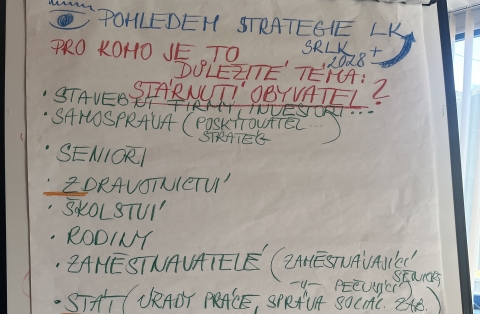 POHLEDEM STRATEGIE LK
SRLK 2028 +
PRO KOHO JE TO
DŮLEŽITÉ TÉMA:
STÁRNUTÍ OBYVATEL?
• STAVEBNÍ FIRMY, INVESTOŘI...
• SAMOSPRÁVA (POSKYTOVATEL...
STRATÉG)
• SENIOŘI
• ZDRAVOTNICTVÍ
• ŠKOLSTVÍ
• RODINY
• ZAMĚSTNAVATELÉ (ZAMĚSTNÁVAJÍCÍ SENIORY
-"- PEČUJÍCÍ)
• STÁT (ÚŘADY PRÁCE, SPRÁVA SOCIÁL. ZAB.